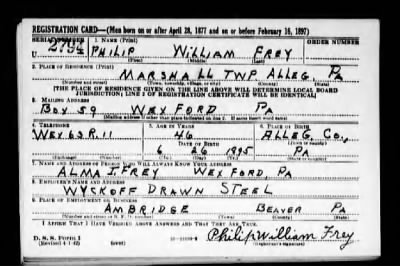 REGISTRATION CARD—(Men born on or after April 28, 1877 and on or before February 16, 1897)
SERIAL NUMBER 1. NAME (Print) ORDER NUMBER
U PHILIP WILLIAM FREY
(First) (Middle) (Last)
2. PLACE OF RESIDENCE (Print)
MARSHALL TWP. ALLEG. PA
(Number and street) (Town, township, village, or city) (County) (State)
[THE PLACE OF RESIDENCE GIVEN ON THE LINE ABOVE WILL DETERMINE LOCAL BOARD
JURISDICTION; LINE 2 OF REGISTRATION CERTIFICATE WILL BE IDENTICAL]
3. MAILING ADDRESS
BOX 59 WEXFORD PA
[Mailing address if other than place indicated on line 2. If same insert word same]
4. TELEPHONE 5. AGE IN YEARS 6. PLACE OF BIRTH
WEX 63 R.11 46 ALLEG. CO.,
DATE OF BIRTH (Town or county)
6 26 1895 PA
(Exchange) (Number) (Mo.) (Day) (Yr.) (State or country)
7. NAME AND ADDRESS OF PERSON WHO WILL ALWAYS KNOW YOUR ADDRESS
ALMA J. FREY WEXFORD, PA
8. EMPLOYER'S NAME AND ADDRESS
WYCKOFF DRAWN STEEL
9. PLACE OF EMPLOYMENT OR BUSINESS
AMBRIDGE BEAVER PA
(Number and street or R. F. D. number) (Town) (County) (State)
I AFFIRM THAT I HAVE VERIFIED ABOVE ANSWERS AND THAT THEY ARE TRUE.
D. S. S. FORM 1
(Revised 4-1-42) (over) Philip William Frey
(Registrant's signature)